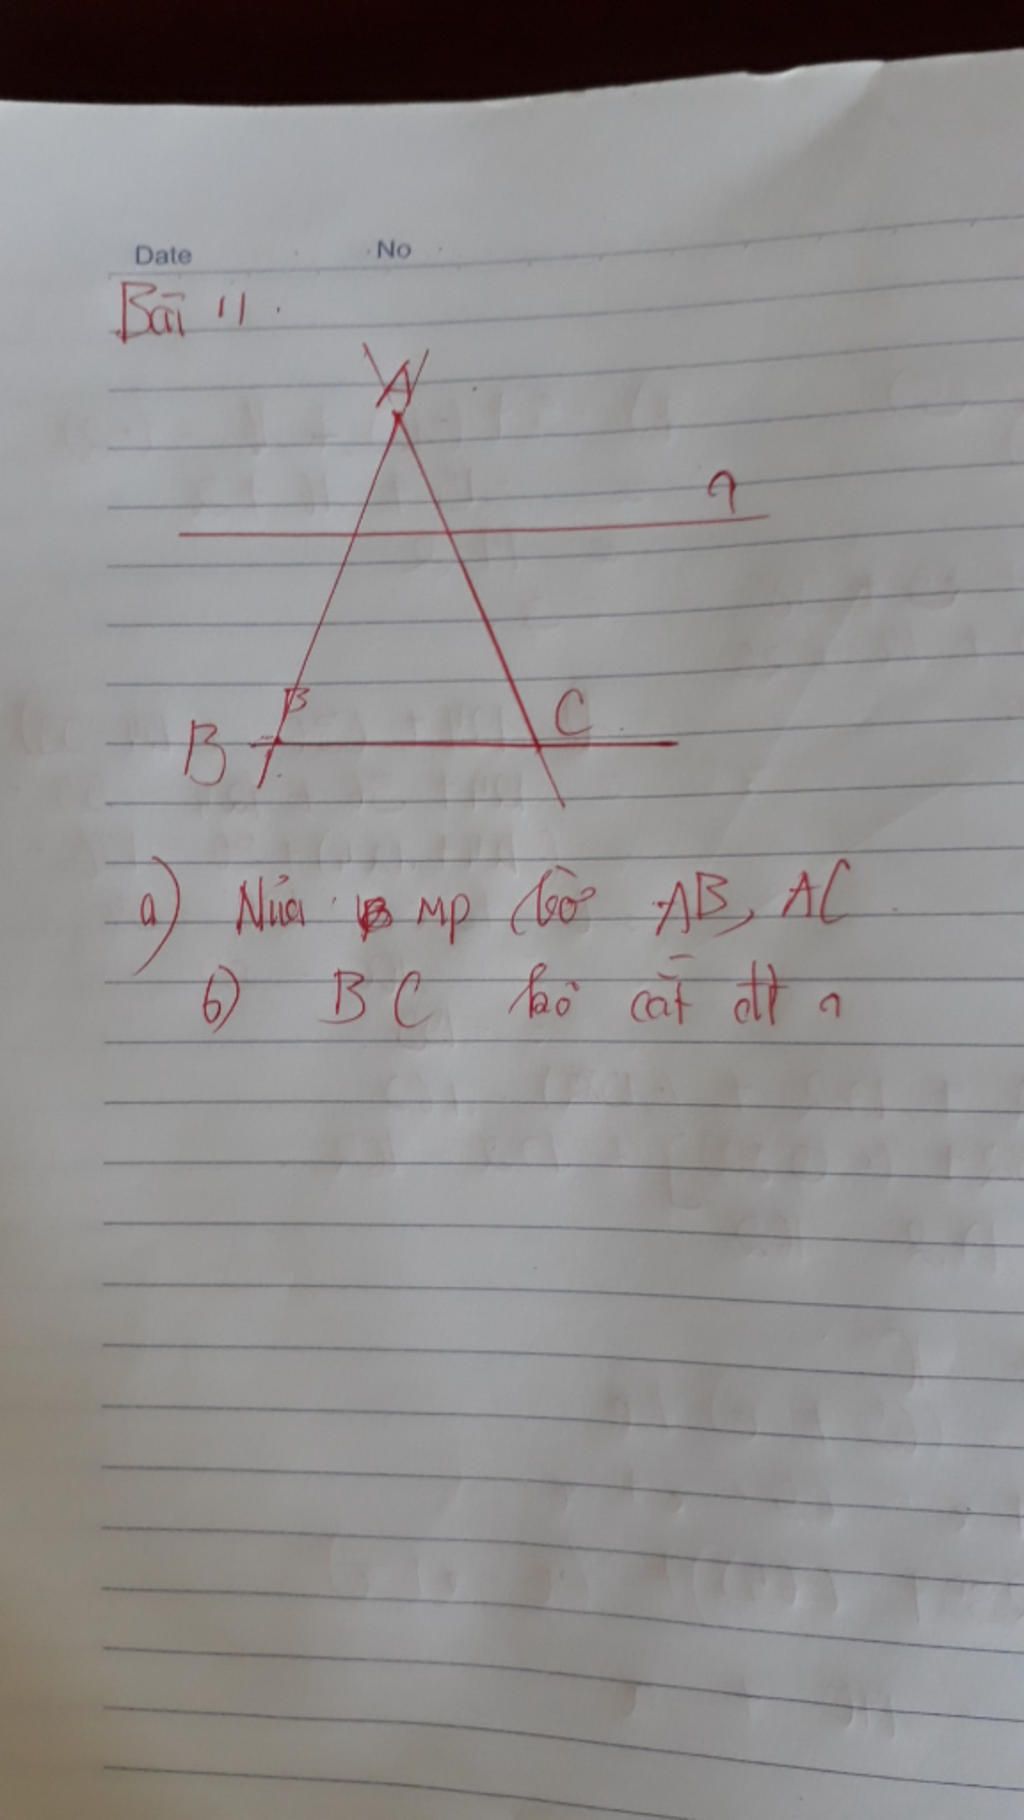 Date No
Bài 11.
A
a
B
B
C
a) Nửa mp bờ AB, AC
b) BC ko cắt đt a